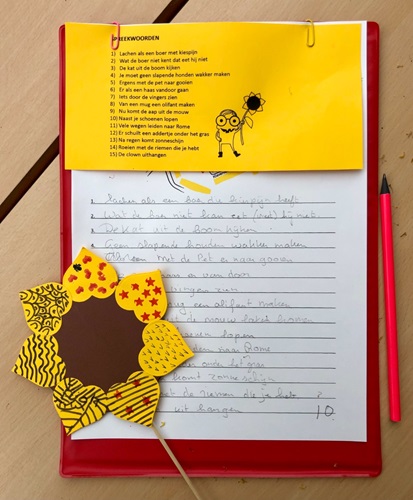 SPREEKWOORDEN
1) Lachen als een boer met kiespijn
2) Wat de boer niet kent dat eet hij niet
3) De kat uit de boom kijken
4) Je moet geen slapende honden wakker maken
5) Ergens met de pet naar gooien
6) Er als een haas vandoor gaan
7) Iets door de vingers zien
8) Van een mug een olifant maken
9) Nu komt de aap uit de mouw
10) Naast je schoenen lopen
11) Vele wegen leiden naar Rome
12) Er schuilt een addertje onder het gras
13) Na regen komt zonneschijn
14) Roeien met de riemen die je hebt
15) De clown uithangen
1. Lachen als een boer die kiespijn heeft
2. Wat de boer niet kan eet (vreet) hij niet.
3. De Kat uit de boom kijken
4. Geen slapende honden wakker maken
met de Pet er naar gooien
er van door
vingers zien
mug een olifant maken
de mouw
schoenen lopen
naar Rome
onder het gras
komt zonneschijn
met de riemen die je hebt ?
uit hangen 10